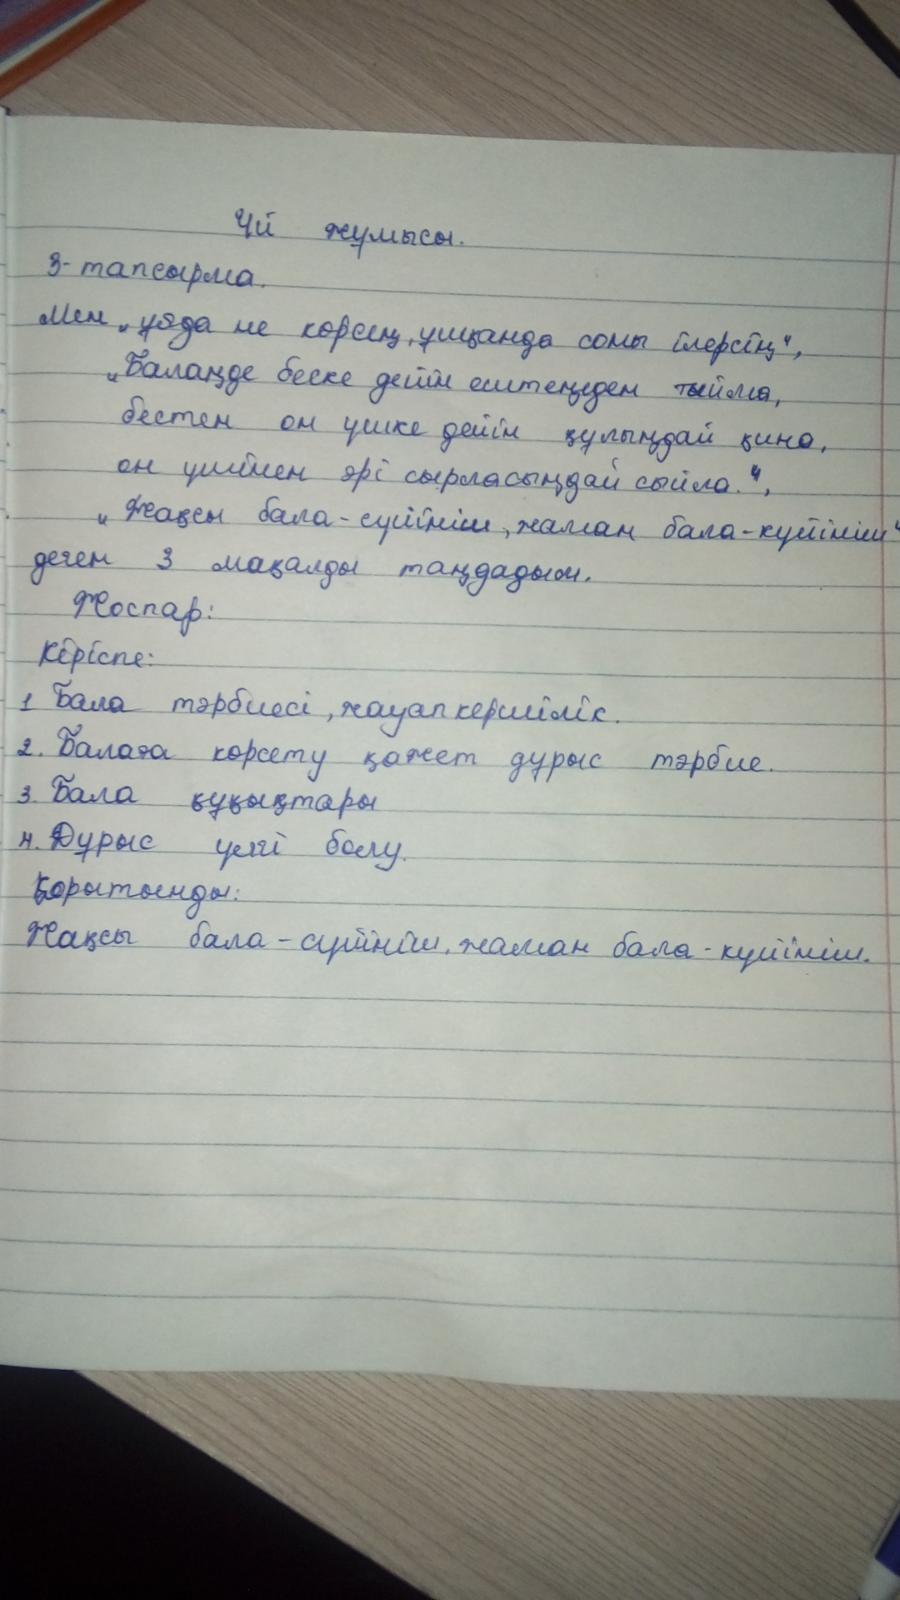 Үй жұмысы.
3-тапсырма.
Мен „ұяда не көрсең, ұшқанда соны ілерсің",
„Балаңде беске дейін ештеңеден тыйма,
бестен он үшке дейін құлыңдай қина,
он үшінен әрі сырласыңдай сыйла.",
„Жақсы бала-сүйініш, жаман бала-күйініш"
деген 3 мақалды таңдадым.
Жоспар:
Кіріспе:
1 Бала тәрбиесі, жауапкершілік.
2. Балаға көрсету қажет дұрыс тәрбие.
3. Бала құқықтары
4. Дұрыс үлгі болу.
Қорытынды:
Жақсы бала-сүйініш, жаман бала-күйініш.